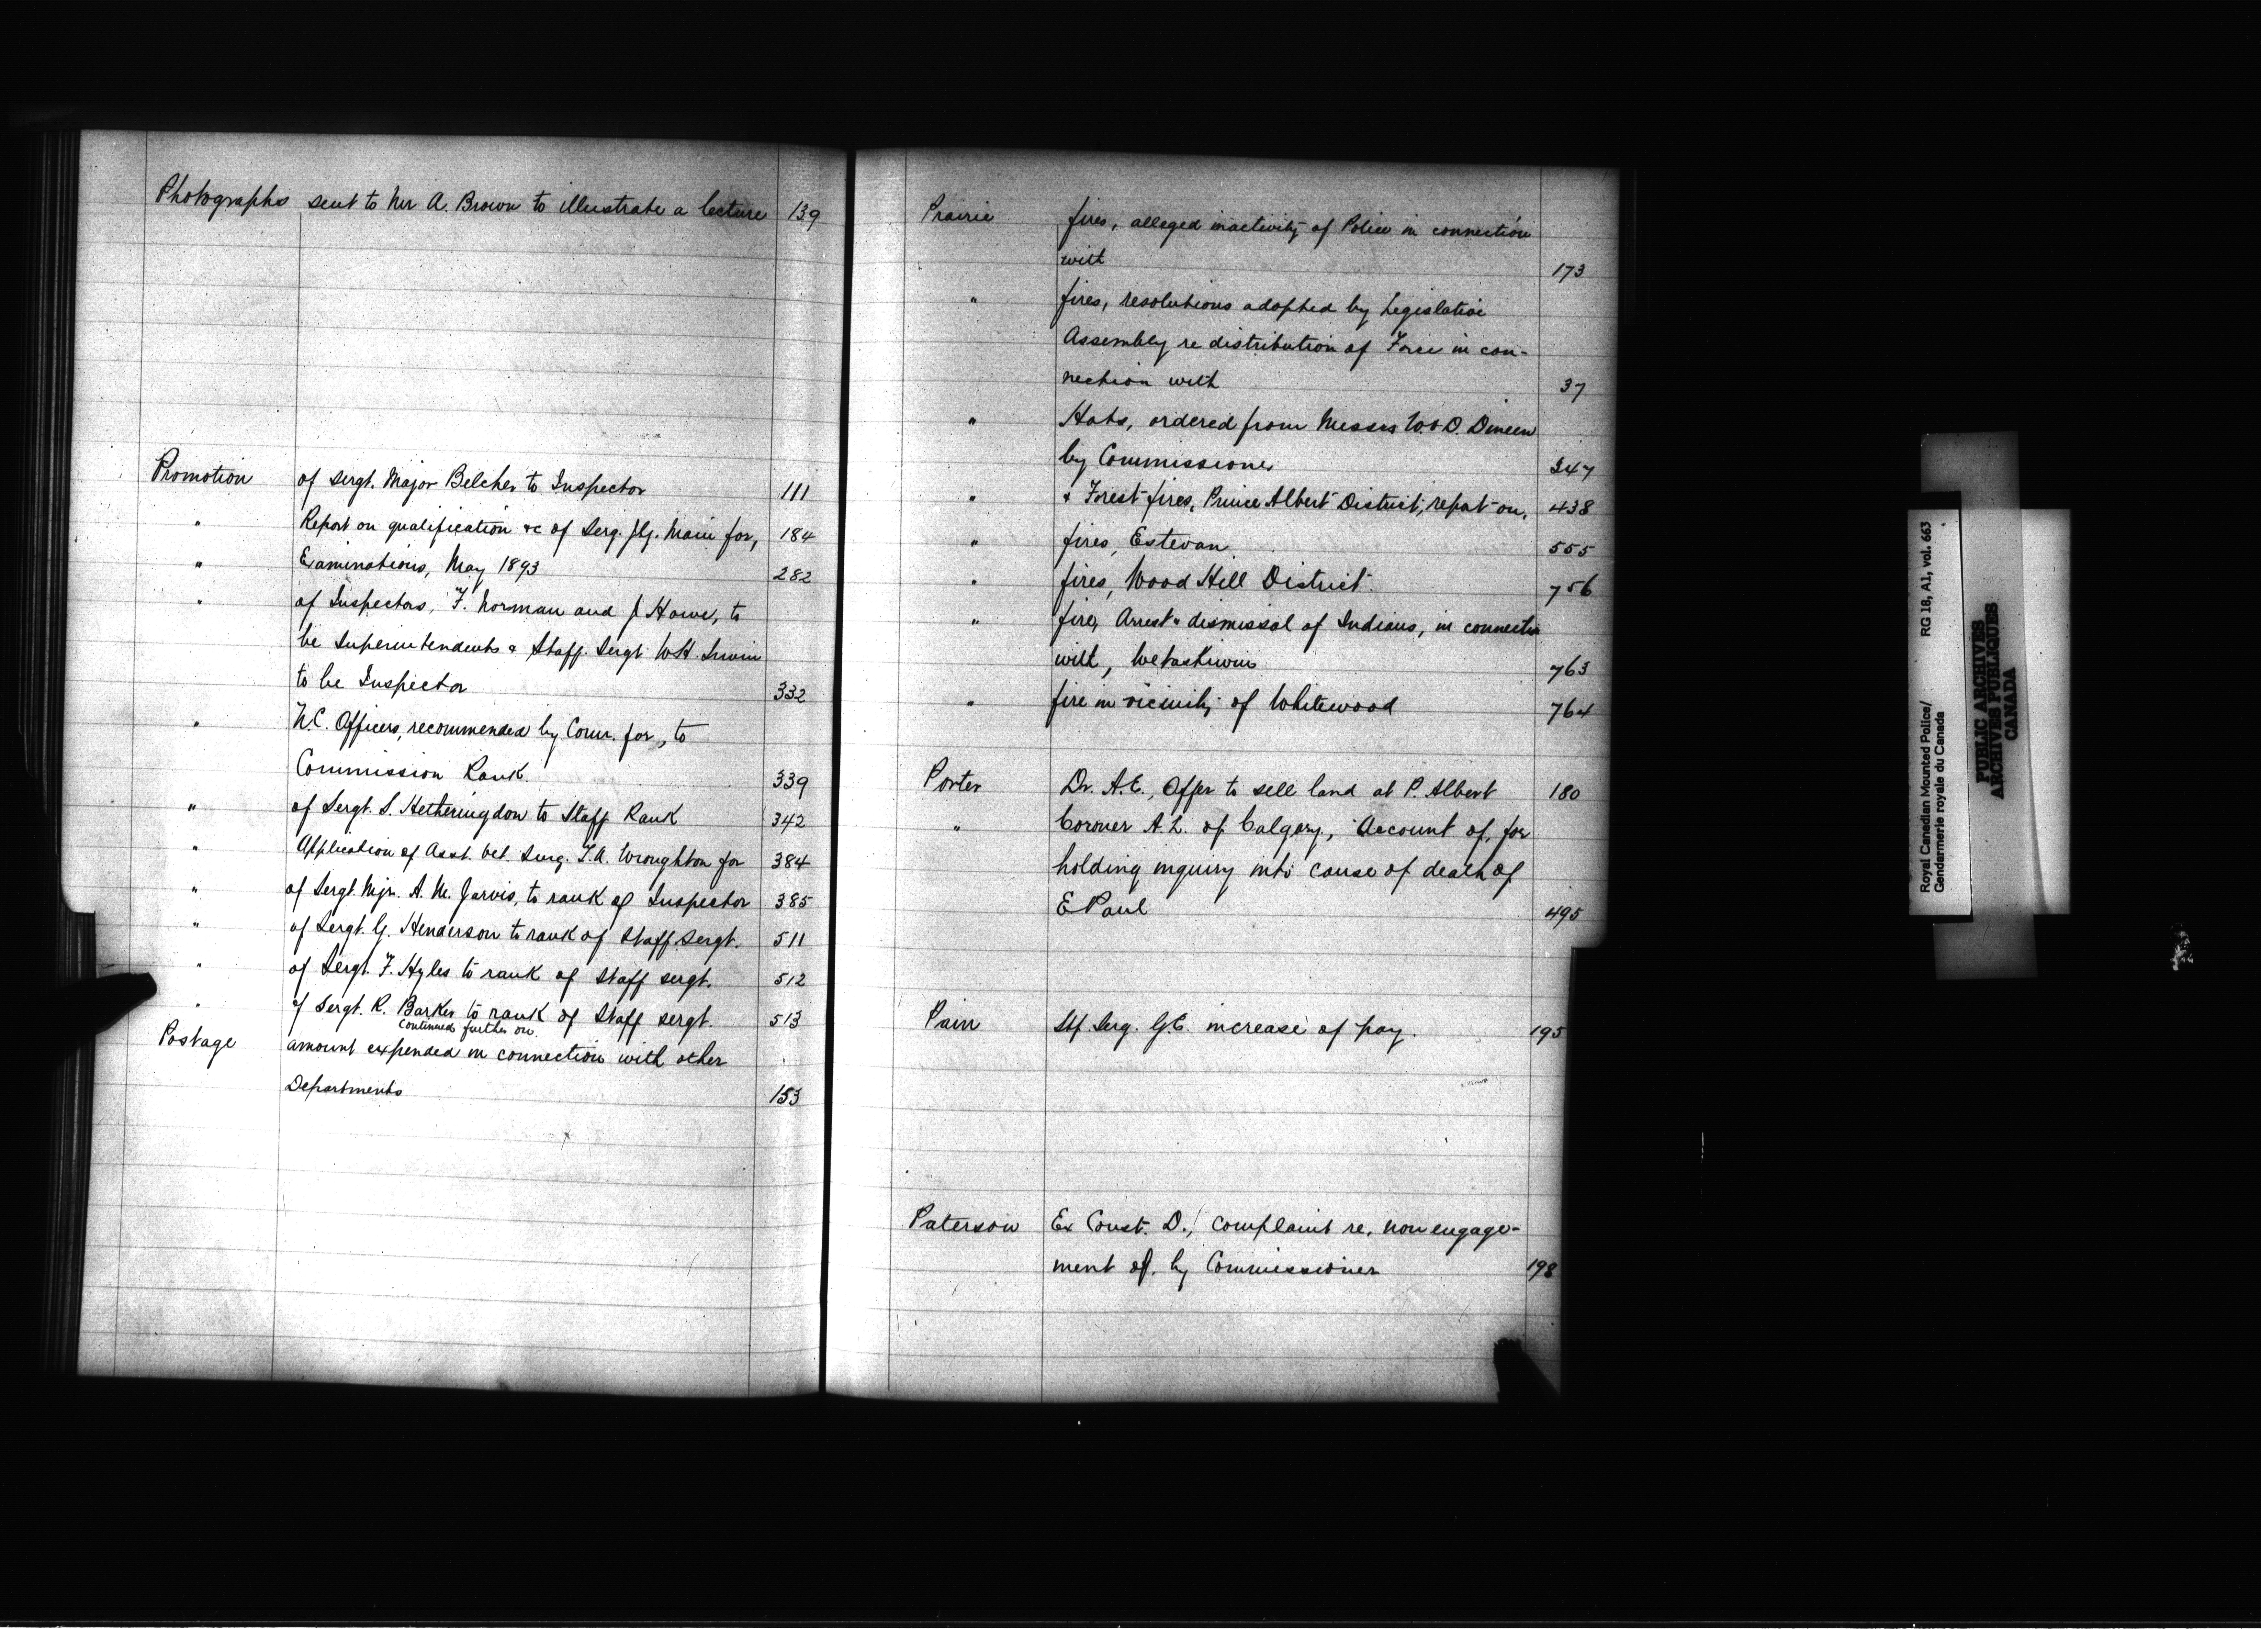 Photographs sent to Mr A. Brown to illustrate a lecture 139
Promotion of Sergt. Major Belcher to Inspector 111
" Report on qualification &c of Serg. J.G. Main for, 184
" Examinations, May 1893 282
" of Inspectors, F. Norman and J Howe, to
be Superintendents & Staff. Sergt W.H. Irwin
to be Inspector 332
" N.C. Officers, recommended by Comr. for, to
Commission Rank. 339
" of Sergt. S. Hetheringdon to Staff Rank 342
" Application of Asst. Vet. Surg. T.A. Wroughton for 384
" of Sergt. Mjr. A. M. Jarvis, to rank of Inspector 385
" of Sergt. G. Henderson to rank of Staff Sergt. 511
" of Sergt. F. Hyles to rank of Staff sergt. 512
" of Sergt. R. Barker to rank of Staff sergt. 513
Continued further on
Postage amount expended in connection with other
Departments 153
Prairie fires, alleged inactivity of Police in connection
with 173
" fires, resolutions adopted by Legislative
Assembly re distribution of Force in con-
nection with 37
" Hats, ordered from Messrs W. & D. Dineen
by Commissioner 347
" & Forest fires, Prince Albert District, report on, 438
" fires, Estevan 555
" fires, Wood Hill District. 756
" fire, Arrest & dismissal of Indians, in connection
with, Wetaskiwin 763
" fire in vicinity of Whitewood 764
Porter Dr. A.E., Offer to sell land at P. Albert 180
" Coroner A.L. of Calgary, Account of, for
holding inquiry into cause of death of
E Paul 495
Pain Stf. Serg. G.E. increase of pay. 195
Paterson Ex Const. D., complaint re, non engage-
ment of, by Commissioner 198
Royal Canadian Mounted Police/ RG 18, A1, vol. 663
Gendarmerie royale du Canada
PUBLIC ARCHIVES
ARCHIVES PUBLIQUES
CANADA